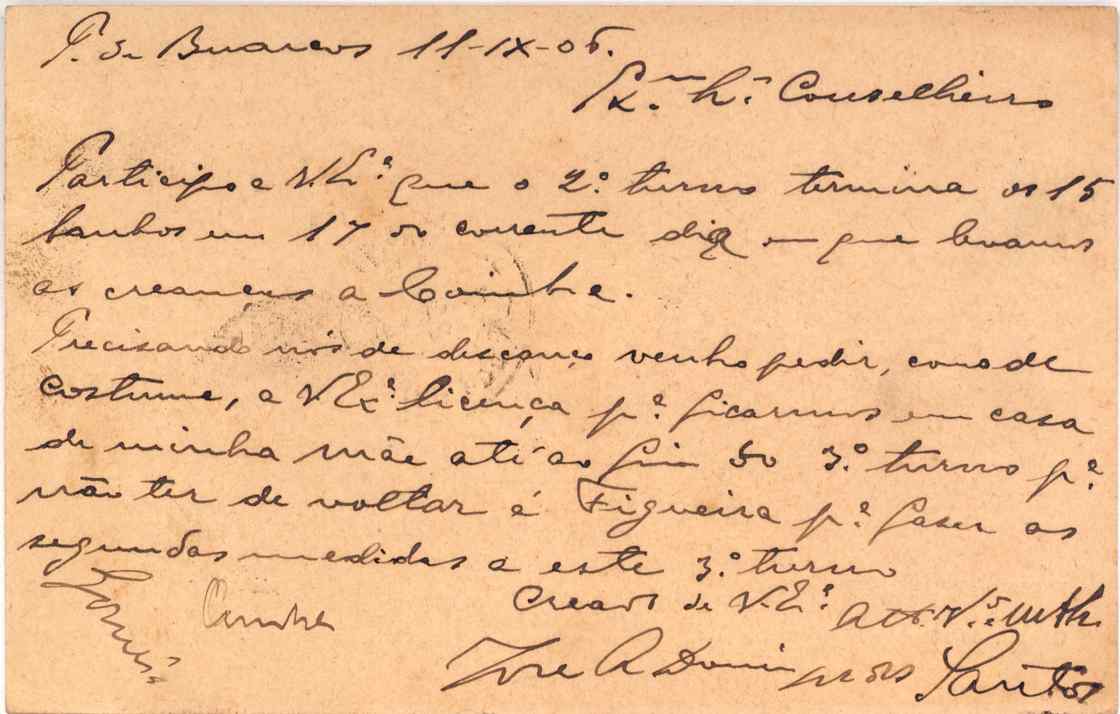 P. de Buarcos 11-IX-05.
Ex.mo Sr. Conselheiro
Participo a V. Ex.ª que o 2.º turno termina os 15
banhos em 17 do corrente dia em que levamos
as creanças a Coimbra.
Precisando nós de descanço venho pedir, como de
costume, a V. Ex.ª licença p.ª ficarmos em casa
de minha mãe até ao fim do 3.º turno p.ª
não ter de voltar á Figueira p.ª faser as
segundas medidas a este 3.º turno
Creado de V. Ex.ª
José A Domingues Santos